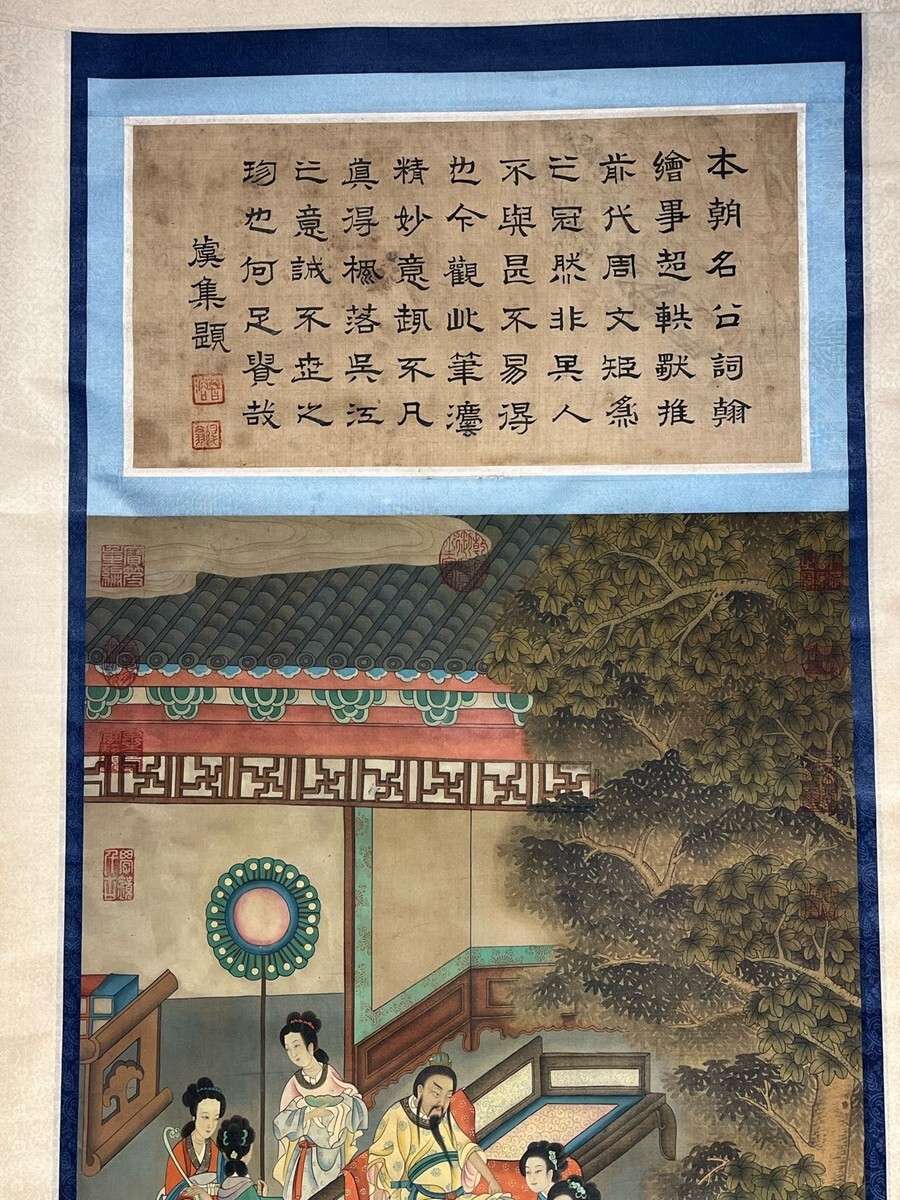 本朝名公詞翰
繪事超軼推
前代周文矩為
之冠然非其人
不與是不易得
也今觀此筆灋
精妙意趣不凡
真得楓落吳江
之意誠不世之
珍也何足貴哉
虞集題